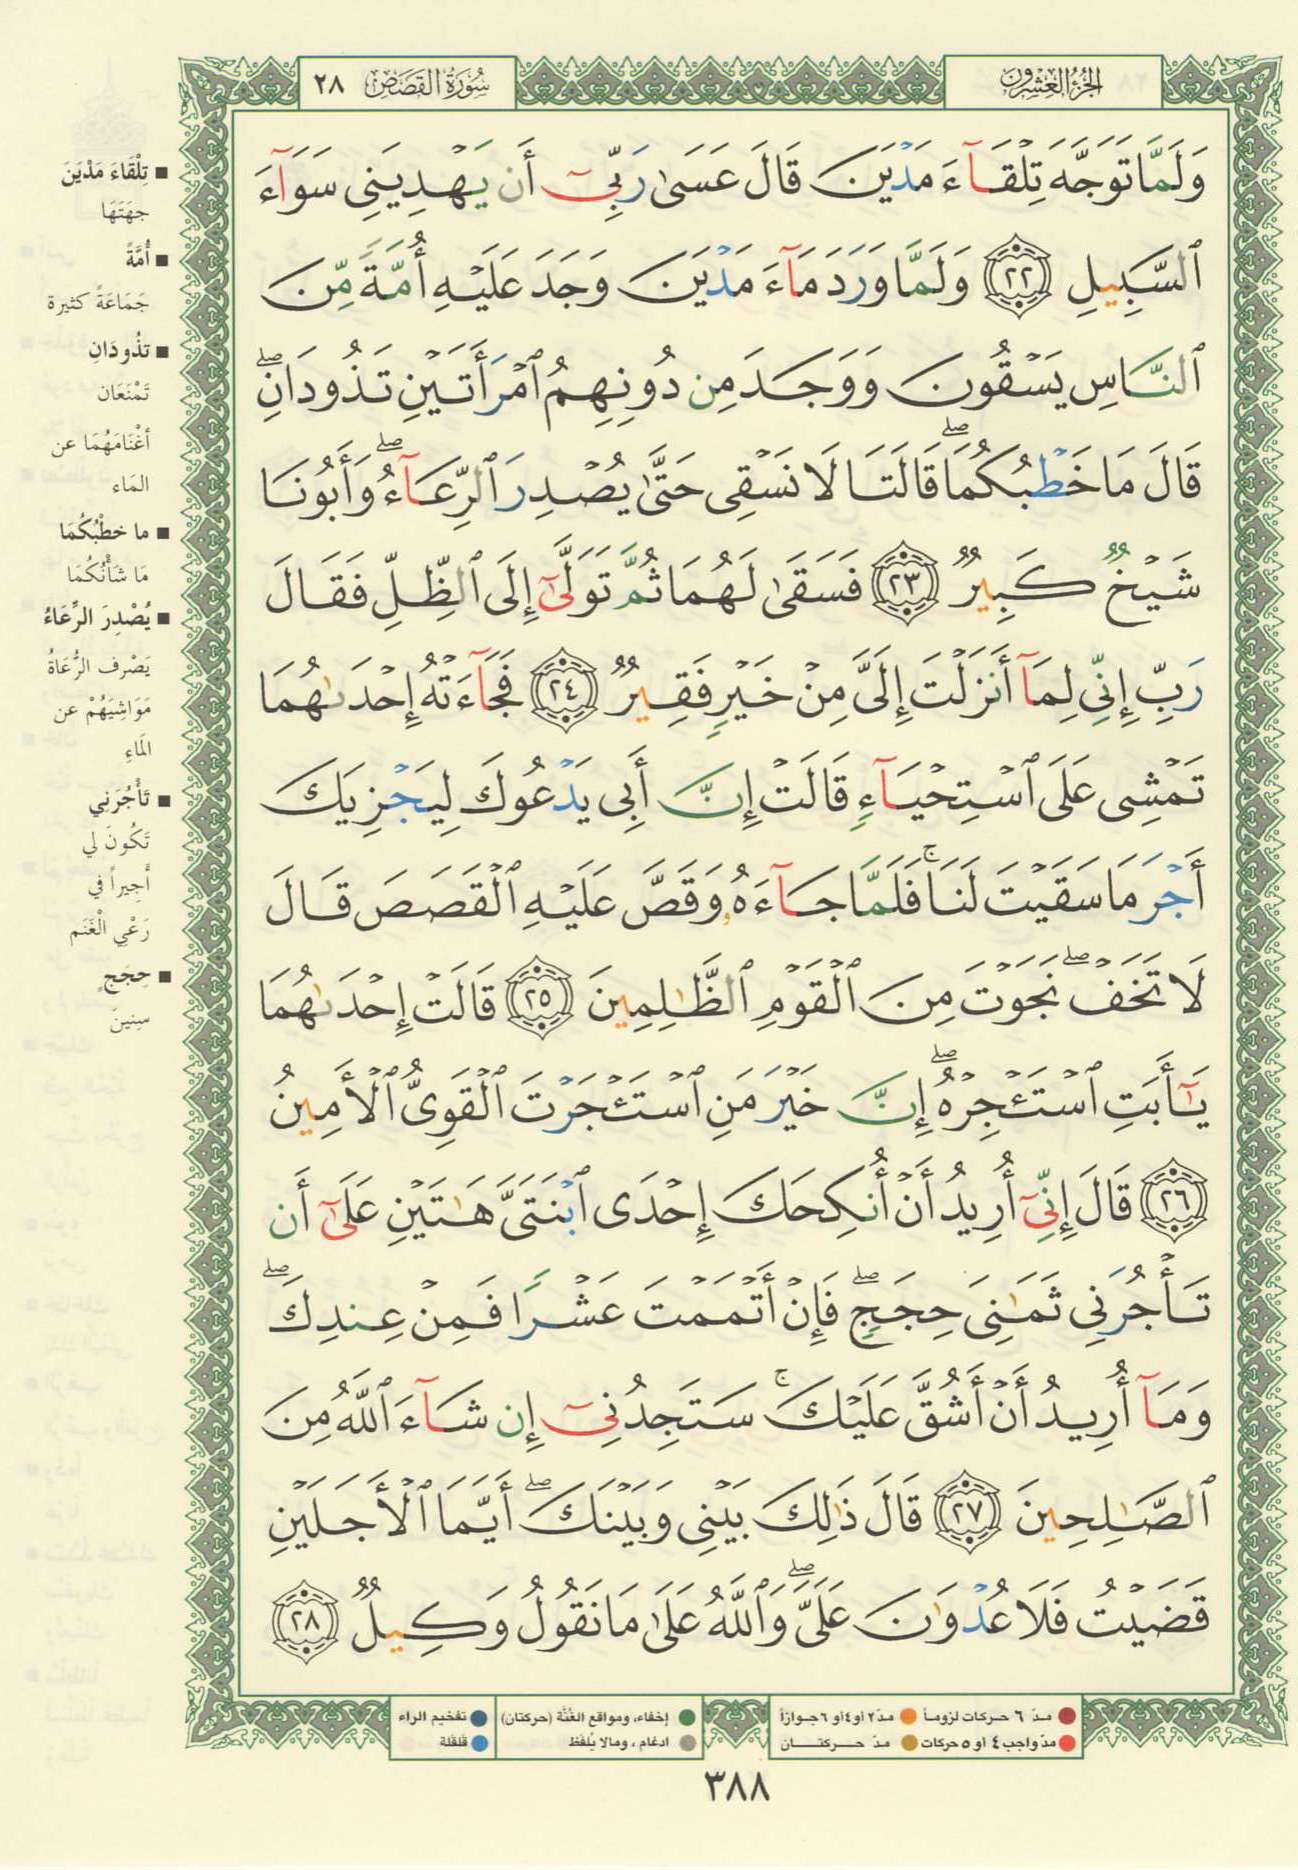 الجزء العشرون
سورة القصص ٢٨
وَلَمَّا تَوَجَّهَ تِلْقَآءَ مَدْيَنَ قَالَ عَسَىٰ رَبِّىٓ أَن يَهْدِيَنِى سَوَآءَ
ٱلسَّبِيلِ ٢٢ وَلَمَّا وَرَدَ مَآءَ مَدْيَنَ وَجَدَ عَلَيْهِ أُمَّةً مِّنَ
ٱلنَّاسِ يَسْقُونَ وَوَجَدَ مِن دُونِهِمُ ٱمْرَأَتَيْنِ تَذُودَانِۖ
قَالَ مَا خَطْبُكُمَاۖ قَالَتَا لَا نَسْقِى حَتَّىٰ يُصْدِرَ ٱلرِّعَآءُۖ وَأَبُونَا
شَيْخٌ كَبِيرٌ ٢٣ فَسَقَىٰ لَهُمَا ثُمَّ تَوَلَّىٰٓ إِلَى ٱلظِّلِّ فَقَالَ
رَبِّ إِنِّى لِمَآ أَنزَلْتَ إِلَىَّ مِنْ خَيْرٍ فَقِيرٌ ٢٤ فَجَآءَتْهُ إِحْدَىٰهُمَا
تَمْشِى عَلَى ٱسْتِحْيَآءٍ قَالَتْ إِنَّ أَبِى يَدْعُوكَ لِيَجْزِيَكَ
أَجْرَ مَا سَقَيْتَ لَنَاۚ فَلَمَّا جَآءَهُۥ وَقَصَّ عَلَيْهِ ٱلْقَصَصَ قَالَ
لَا تَخَفْۖ نَجَوْتَ مِنَ ٱلْقَوْمِ ٱلظَّٰلِمِينَ ٢٥ قَالَتْ إِحْدَىٰهُمَا
يَٰٓأَبَتِ ٱسْتَـْٔجِرْهُۖ إِنَّ خَيْرَ مَنِ ٱسْتَـْٔجَرْتَ ٱلْقَوِىُّ ٱلْأَمِينُ
٢٦ قَالَ إِنِّىٓ أُرِيدُ أَنْ أُنكِحَكَ إِحْدَى ٱبْنَتَىَّ هَٰتَيْنِ عَلَىٰٓ أَن
تَأْجُرَنِى ثَمَٰنِىَ حِجَجٍۖ فَإِنْ أَتْمَمْتَ عَشْرًا فَمِنْ عِندِكَۖ
وَمَآ أُرِيدُ أَنْ أَشُقَّ عَلَيْكَۚ سَتَجِدُنِىٓ إِن شَآءَ ٱللَّهُ مِنَ
ٱلصَّٰلِحِينَ ٢٧ قَالَ ذَٰلِكَ بَيْنِى وَبَيْنَكَۖ أَيَّمَا ٱلْأَجَلَيْنِ
قَضَيْتُ فَلَا عُدْوَٰنَ عَلَىَّۖ وَٱللَّهُ عَلَىٰ مَا نَقُولُ وَكِيلٌ ٢٨
■ تِلْقَاءَ مَدْيَنَ
جِهَتَهَا
■ أُمَّةً
جَمَاعَةً كثيرة
■ تذُودَانِ
تَمْنَعَان
أغْنَامَهُمَا عن
المَاء
■ ما خطْبُكُمَا
مَا شَأْنُكُمَا
■ يُصْدِرَ الرِّعَاءُ
يَصْرف الرُّعَاةُ
مَوَاشِيَهُمْ عن
المَاءِ
■ تَأْجُرَنِي
تَكُونَ لي
أَجِيراً في
رَعْيِ الْغَنَم
■ حِجَجٍ
سِنِينَ
مدّ ٦ حركات لزوماً
مدّ ٢ أو ٤ أو ٦ جوازاً
إخفاء، ومواقع الغُنَّة (حركتان)
تفخيم الراء
مدّ واجب ٤ أو ٥ حركات
مدّ حركتان
ادغام، ومالا يُلفَظ
قلقلة
٣٨٨